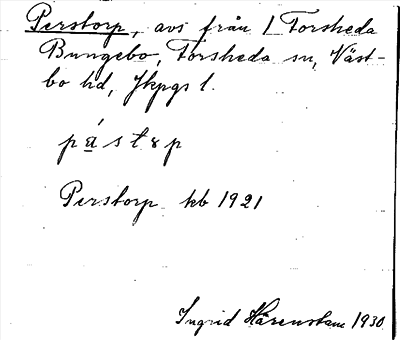 Perstorp, avs från 1 Torsheda
Bungebo, Torsheda sn, Väst-
bo hd, Jkpgs l.
pá̱stɤp
Perstorp kb 1921
Ingrid Härenstam 1930